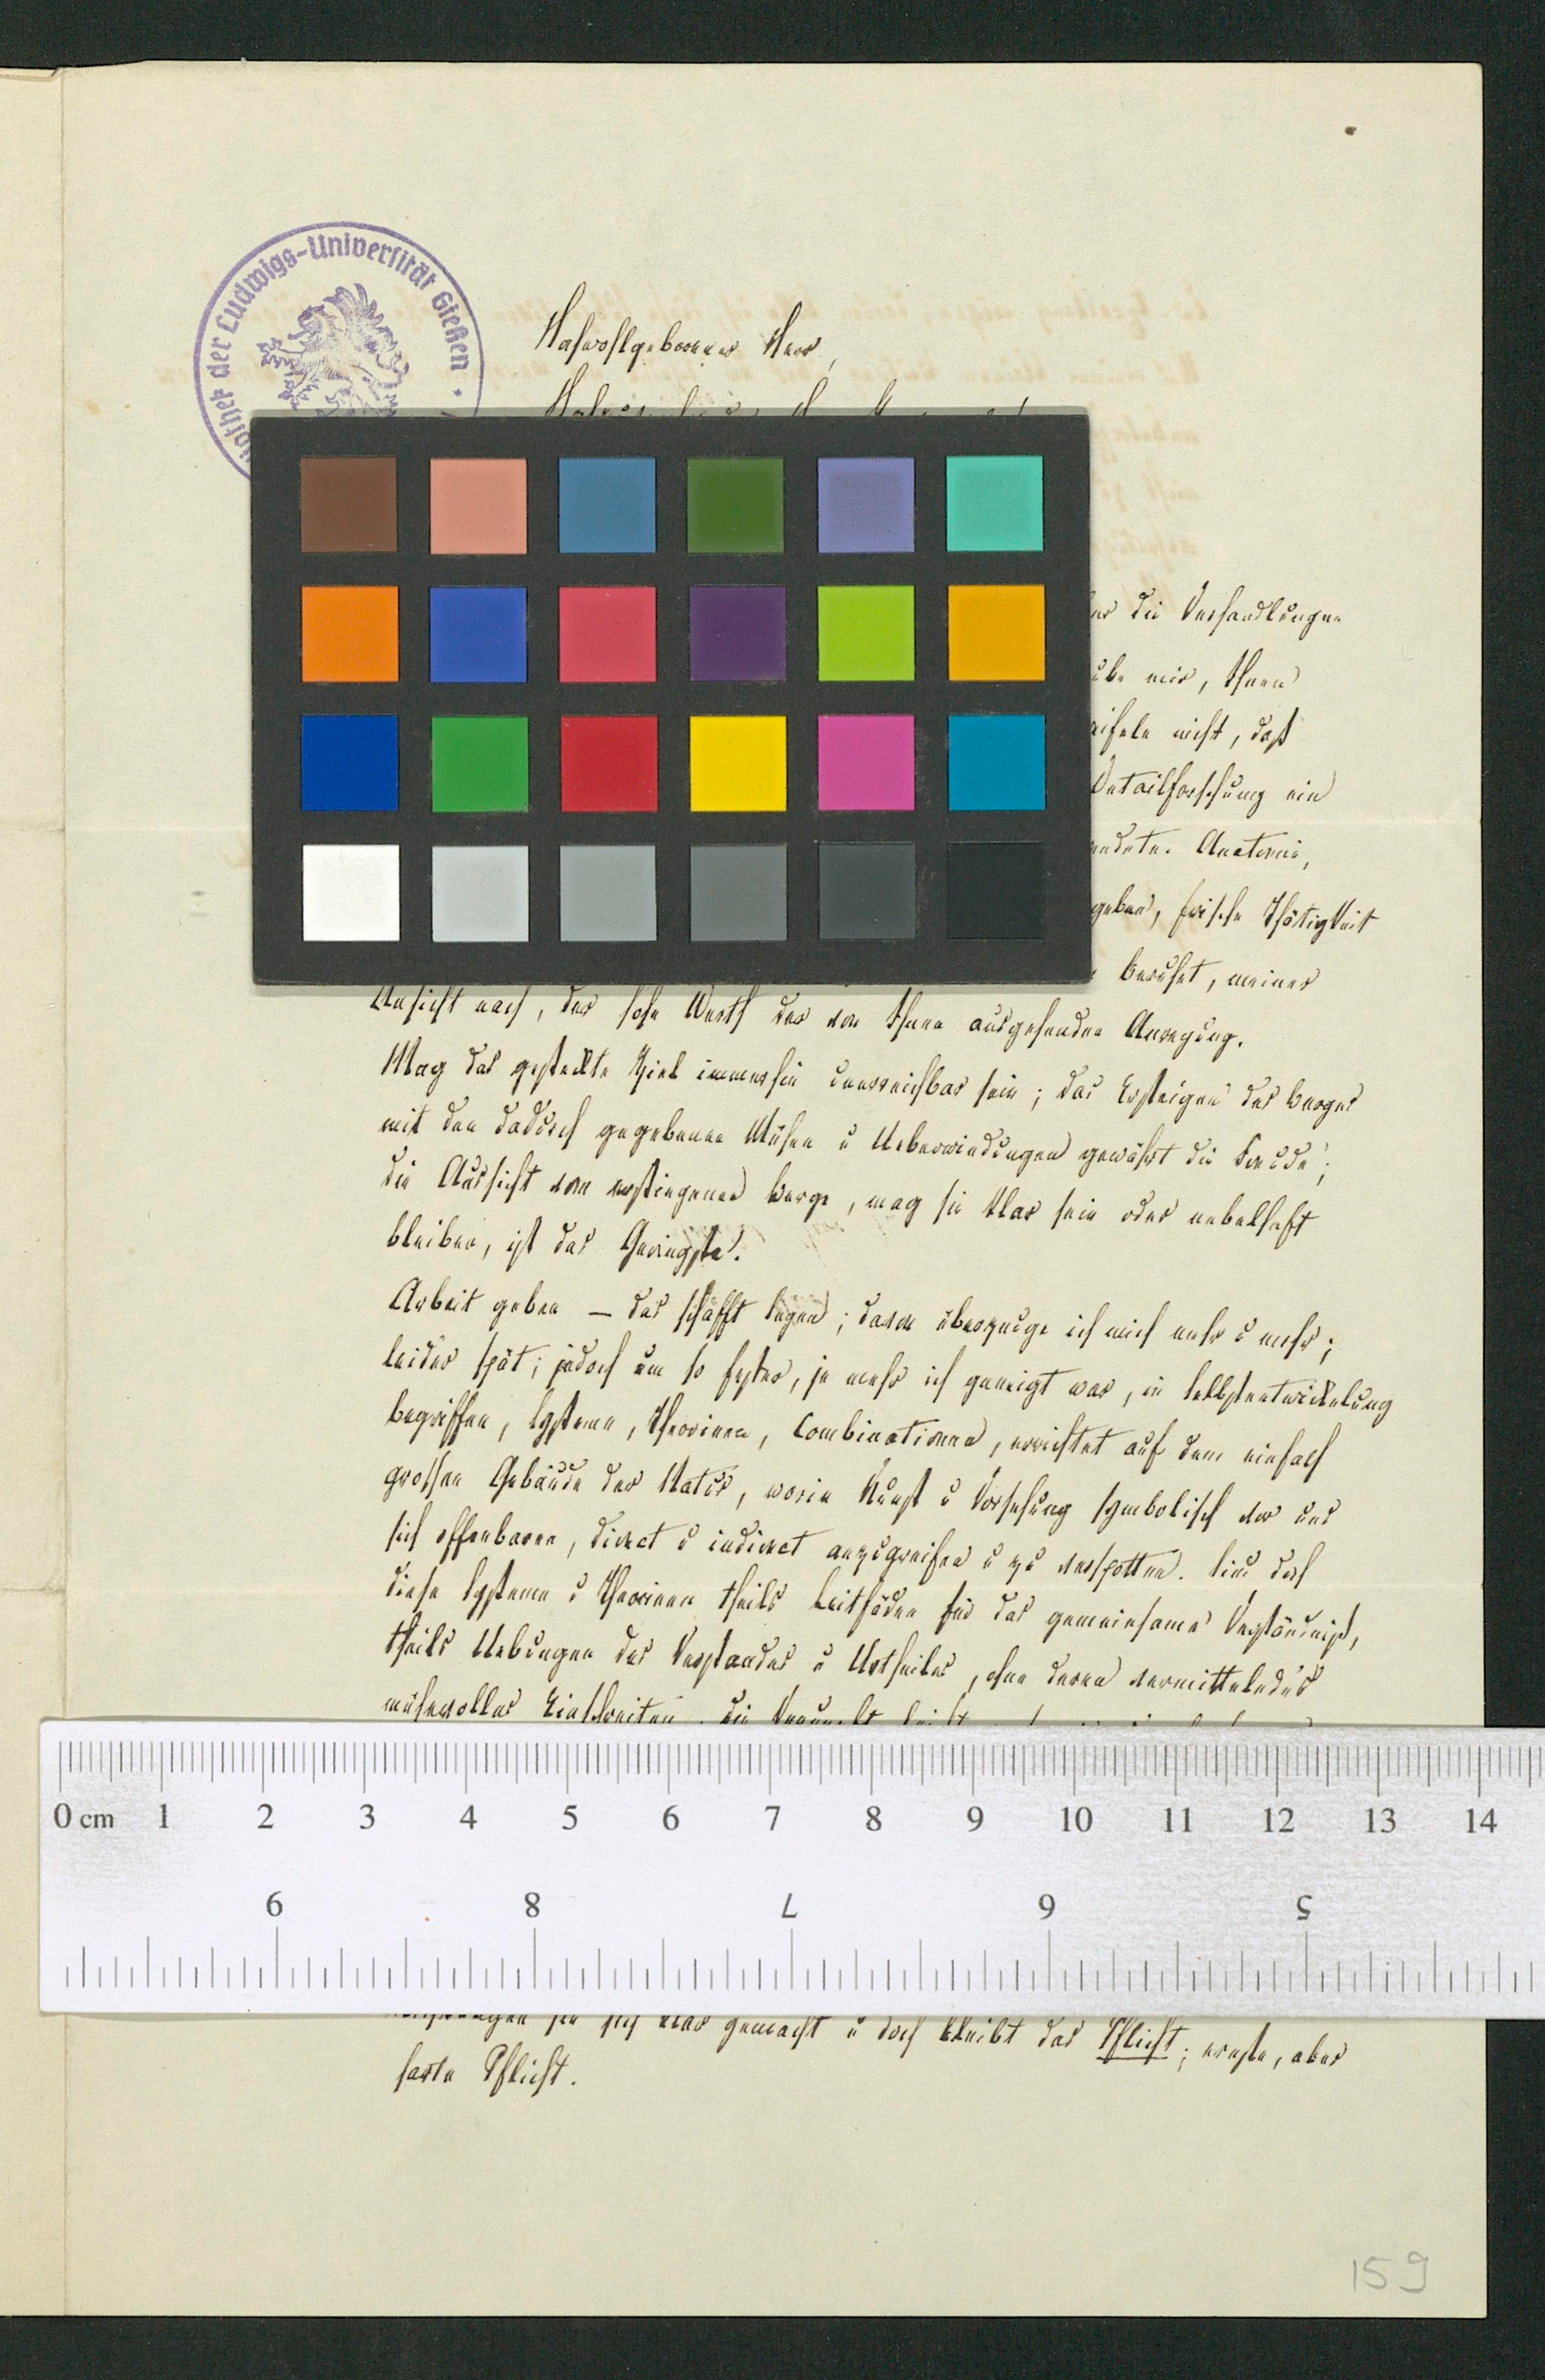 Bibliothek der Ludwigs-Universität Gießen
Hochwohlgeborener Herr,
die Verhandlungen
mir, Ihnen
nicht, daß
Detailforschung ein
Anatomie,
geben, frische Thätigkeit
beruhet, meiner
Ansicht nach, der hohe Werth der von Ihnen ausgehenden Anregung.
Mag das gesteckte Ziel immerhin unerreichbar sein; das Ersteigen des Berges
mit den dadurch gegebenen Mühen u Ueberwindungen gewährt die Freude;
die Aussicht vom erstiegenen Berge, mag sie klar sein oder nebelhaft
bleiben, ist das Geringste.
Arbeit geben – das schafft Segen; davon überzeuge ich mich mehr u mehr;
leider spät; jedoch um so fester, je mehr ich geneigt war, in Selbstentwickelung
begriffen, Systeme, Theorieen, Combinationen, errichtet auf dem einfach
großen Gebäude der Natur, worin Kunst u Vorsehung symbolisch vor uns
sich offenbaren, direct u indirect anzugreifen u zu verspotten. Sind doch
diese Systeme u Theorieen theils Leitfäden für das gemeinsame Verständniß,
theils Uebungen des Verstandes u Urtheiles, ohne deren vermittelndes
mühevolles Einschreiten die
0 cm 1 2 3 4 5 6 7 8 9 10 11 12 13 14
9 8 7 6 5
sich klar gemacht u doch bleibt das Pflicht; ernste, aber
harte Pflicht.
159